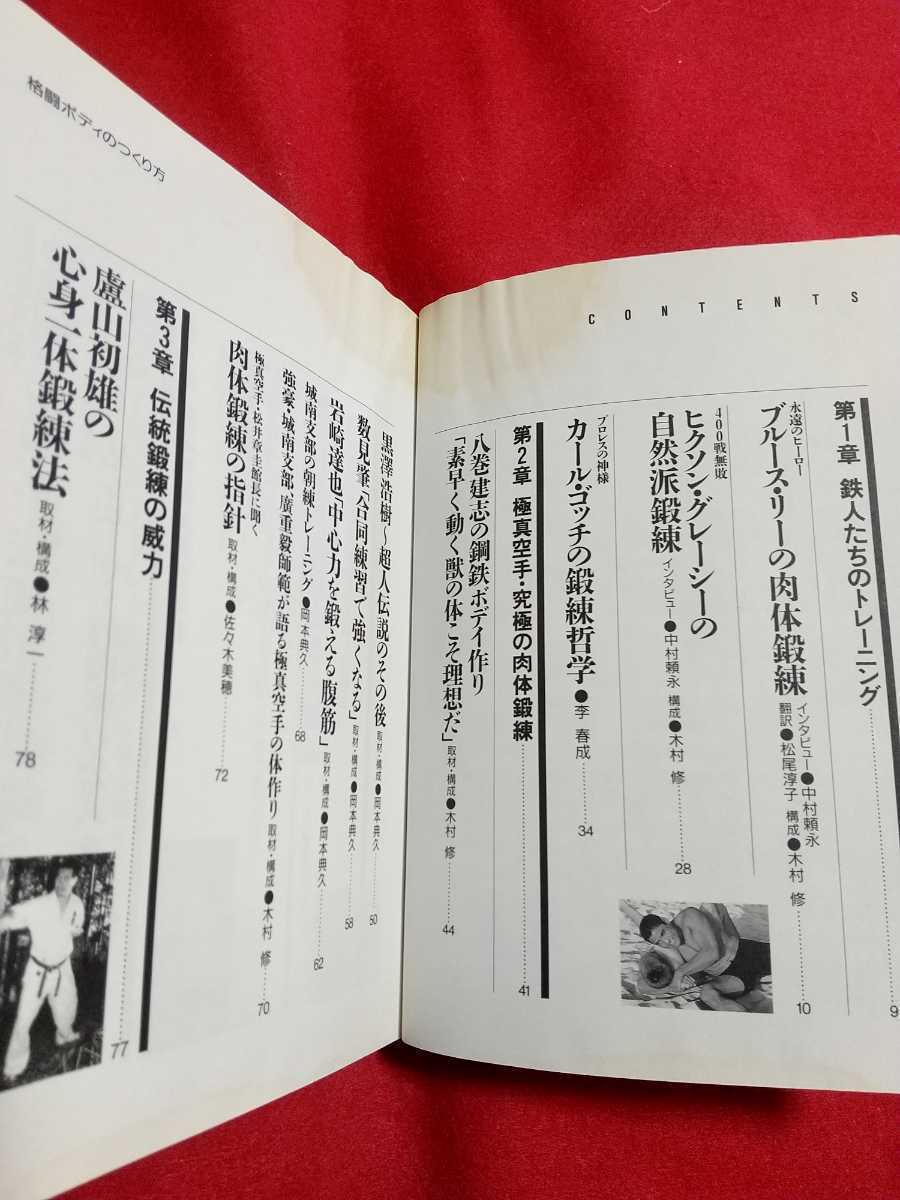 CONTENTS
第1章 鉄人たちのトレーニング
9
永遠のヒーロー
ブルース・リーの肉体鍛練
インタビュー●中村頼永
翻訳●松尾淳子 構成●木村 修
10
400戦無敗
ヒクソン・グレーシーの
自然派鍛練
インタビュー●中村頼永 構成●木村 修
28
プロレスの神様
カール・ゴッチの鍛練哲学
●李 春成
34
第2章 極真空手・究極の肉体鍛練
41
八巻建志の鋼鉄ボデイ作り
「素早く動く獣の体こそ理想だ」
取材・構成●木村 修
44
格闘ボディのつくり方
黒澤浩樹〜超人伝説のその後
取材・構成●岡本典久
50
数見肇「合同練習で強くなる」
取材・構成●岡本典久
58
岩崎達也「中心力を鍛える腹筋」
取材・構成●岡本典久
62
城南支部の朝練トレーニング
●岡本典久
68
強豪・城南支部 廣重毅師範が語る極真空手の体作り
取材・構成●木村 修
70
極真空手・松井章圭館長に聞く
肉体鍛練の指針
取材・構成●佐々木美穂
72
第3章 伝統鍛練の威力
77
盧山初雄の
心身一体鍛練法
取材・構成●林 淳一
78